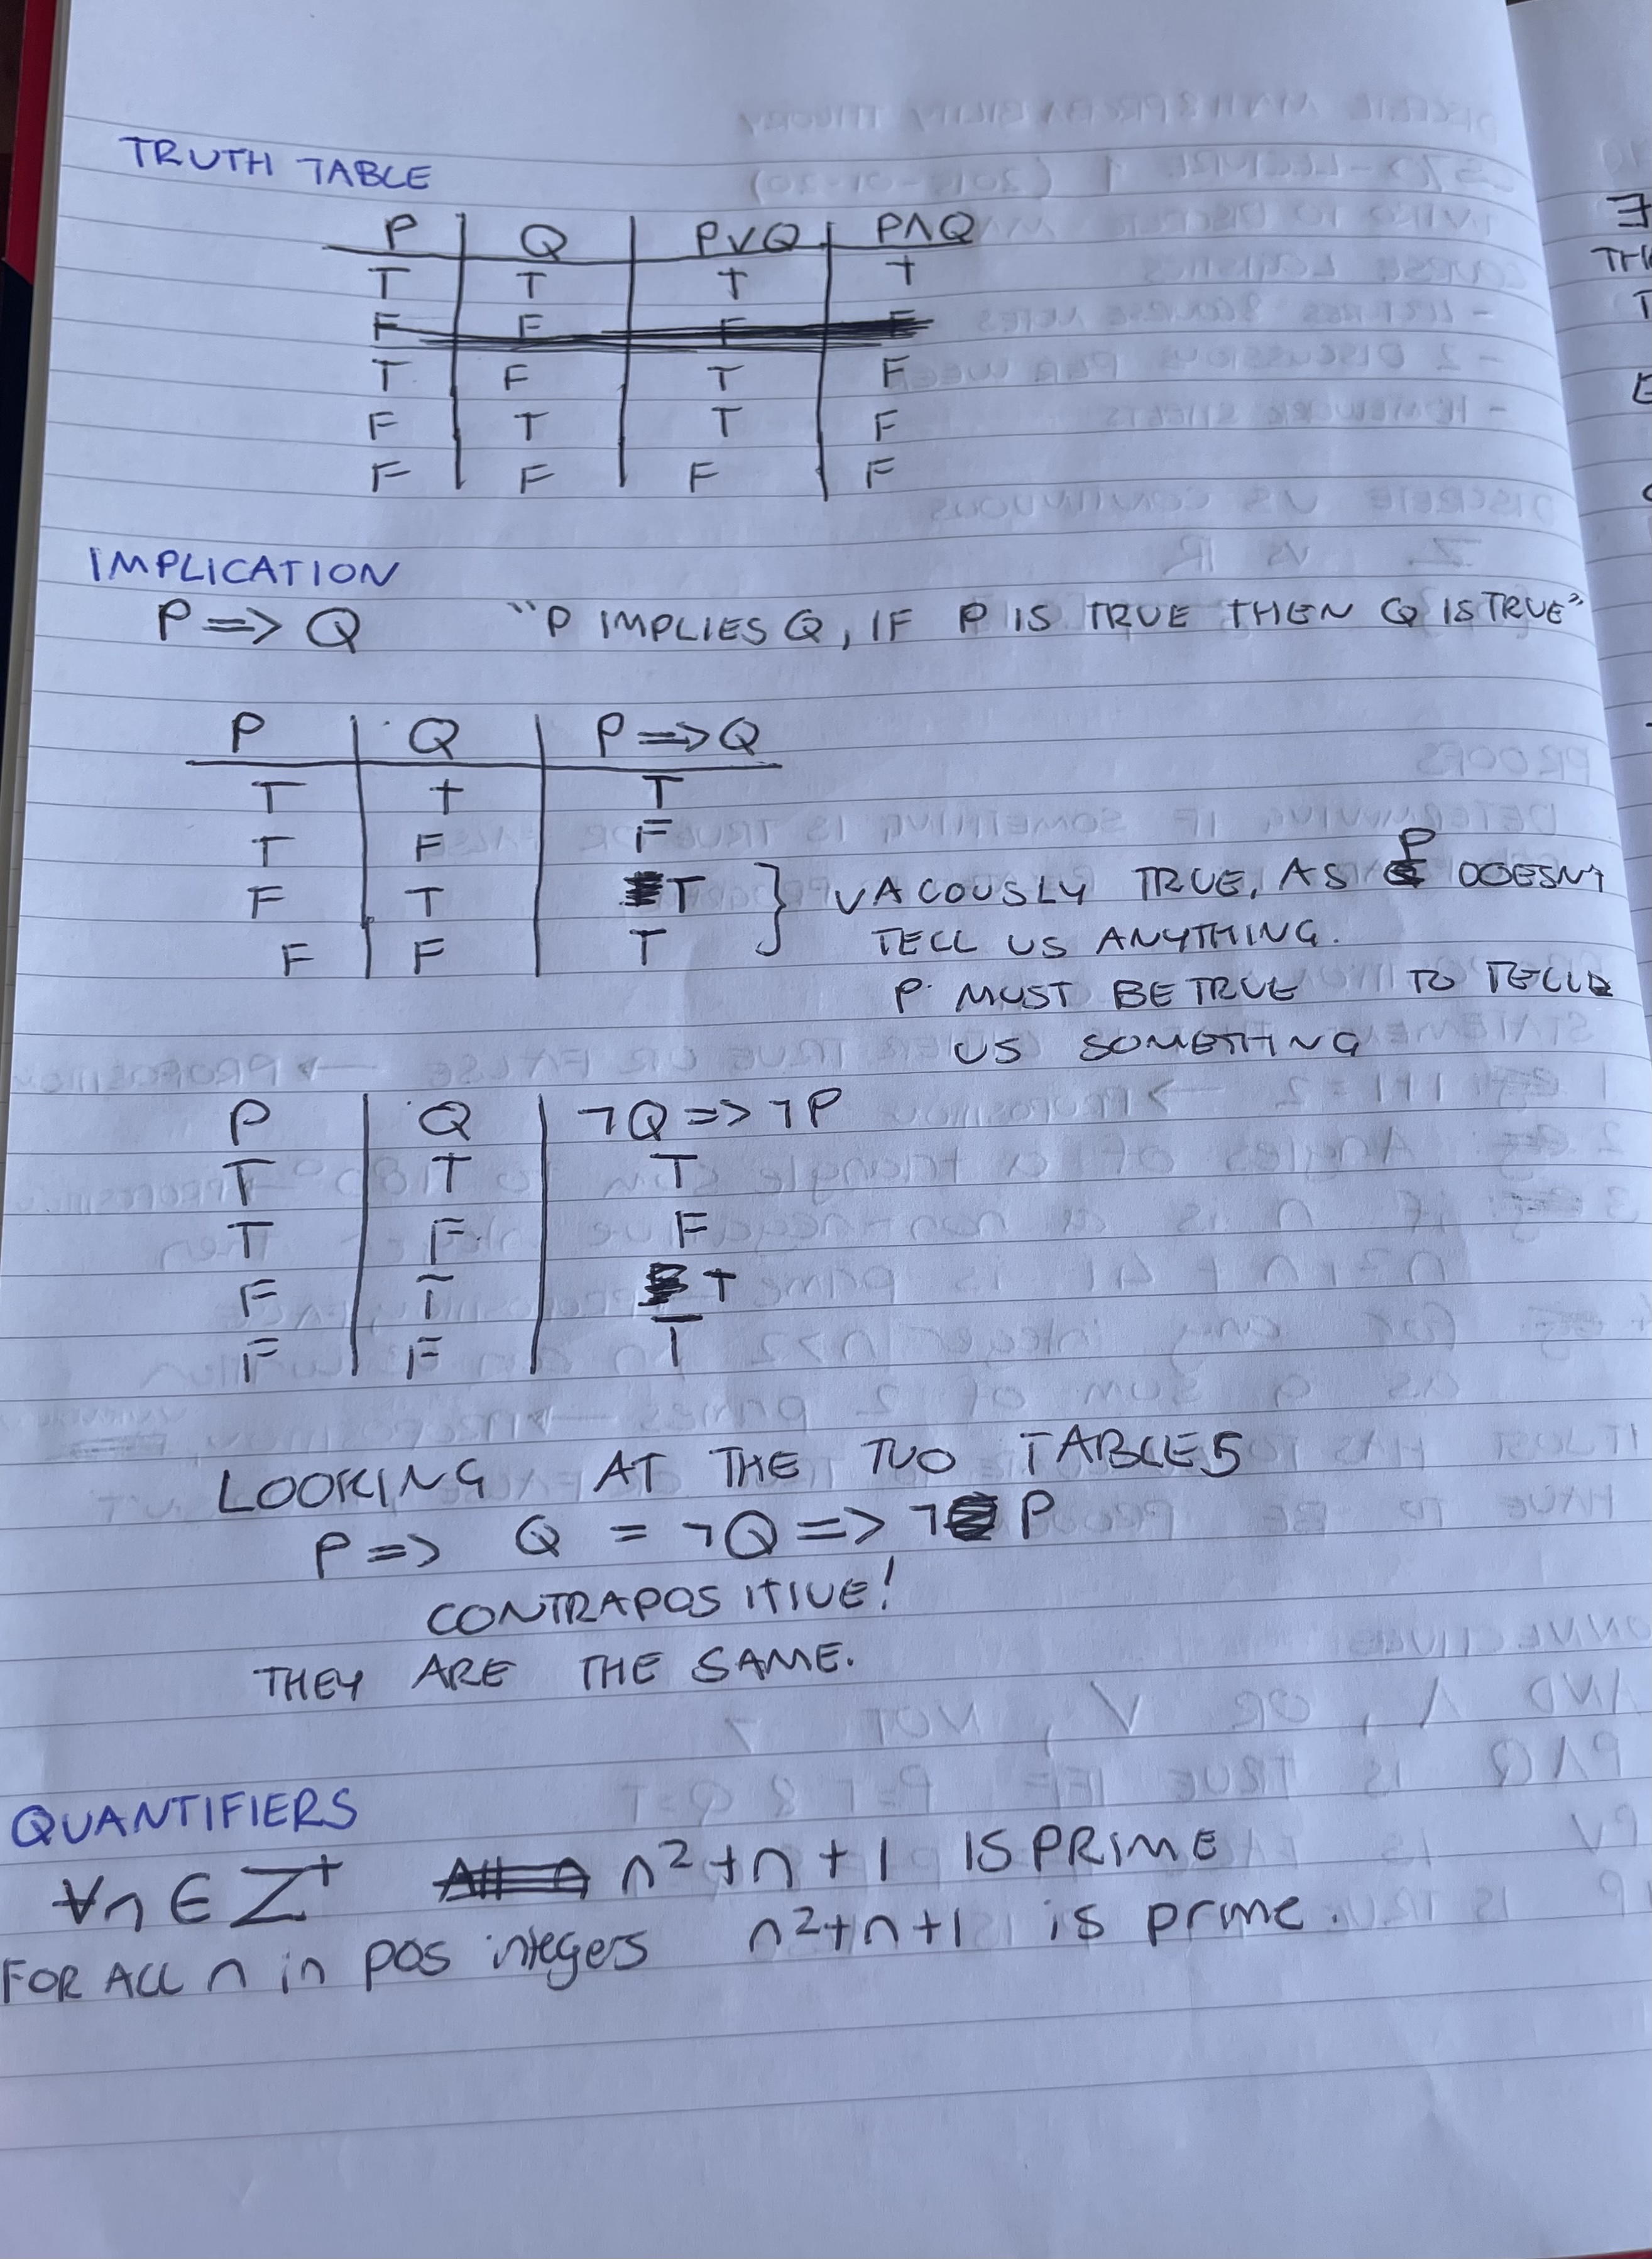 TRUTH TABLE
P Q P∨Q P∧Q
T T T T
F F F F
T F T F
F T T F
F F F F
IMPLICATION
P => Q "P IMPLIES Q, IF P IS TRUE THEN Q IS TRUE"
P Q P => Q
T T T
T F F
F T T } VACOUSLY TRUE, AS P DOESN'T
F F T TELL US ANYTHING.
P MUST BE TRUE TO TELL
US SOMETHING
P Q ¬Q => ¬P
T T T
T F F
F T T
F F T
LOOKING AT THE TWO TABLES
P => Q = ¬Q => ¬ P
CONTRAPOSITIVE!
THEY ARE THE SAME.
QUANTIFIERS
∀n ∈ Z⁺ All n n² + n + 1 IS PRIME
FOR ALL n in pos integers n² + n + 1 is prime.